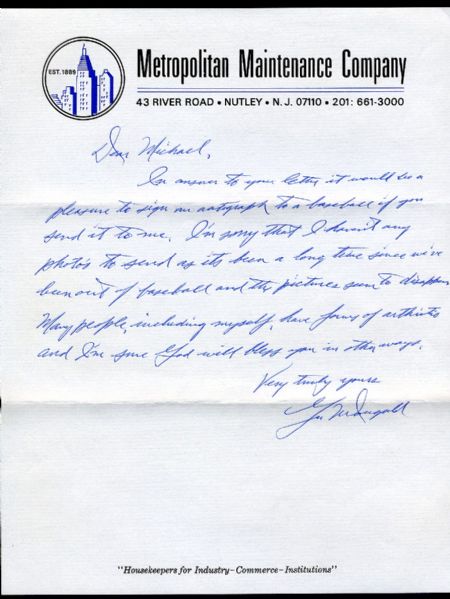 EST. 1889
Metropolitan Maintenance Company
43 RIVER ROAD • NUTLEY • N. J. 07110 • 201: 661-3000
Dear Michael,
In answer to your letter it would be a
pleasure to sign an autograph to a baseball if you
send it to me. I'm sorry that I haven't any
photos to send as its been a long time since we've
been out of baseball and the pictures seem to disappear
Many people, including myself, have forms of arthritis
and I'm sure God will bless you in other ways.
Very truly yours
Gil McDougald
"Housekeepers for Industry–Commerce–Institutions"